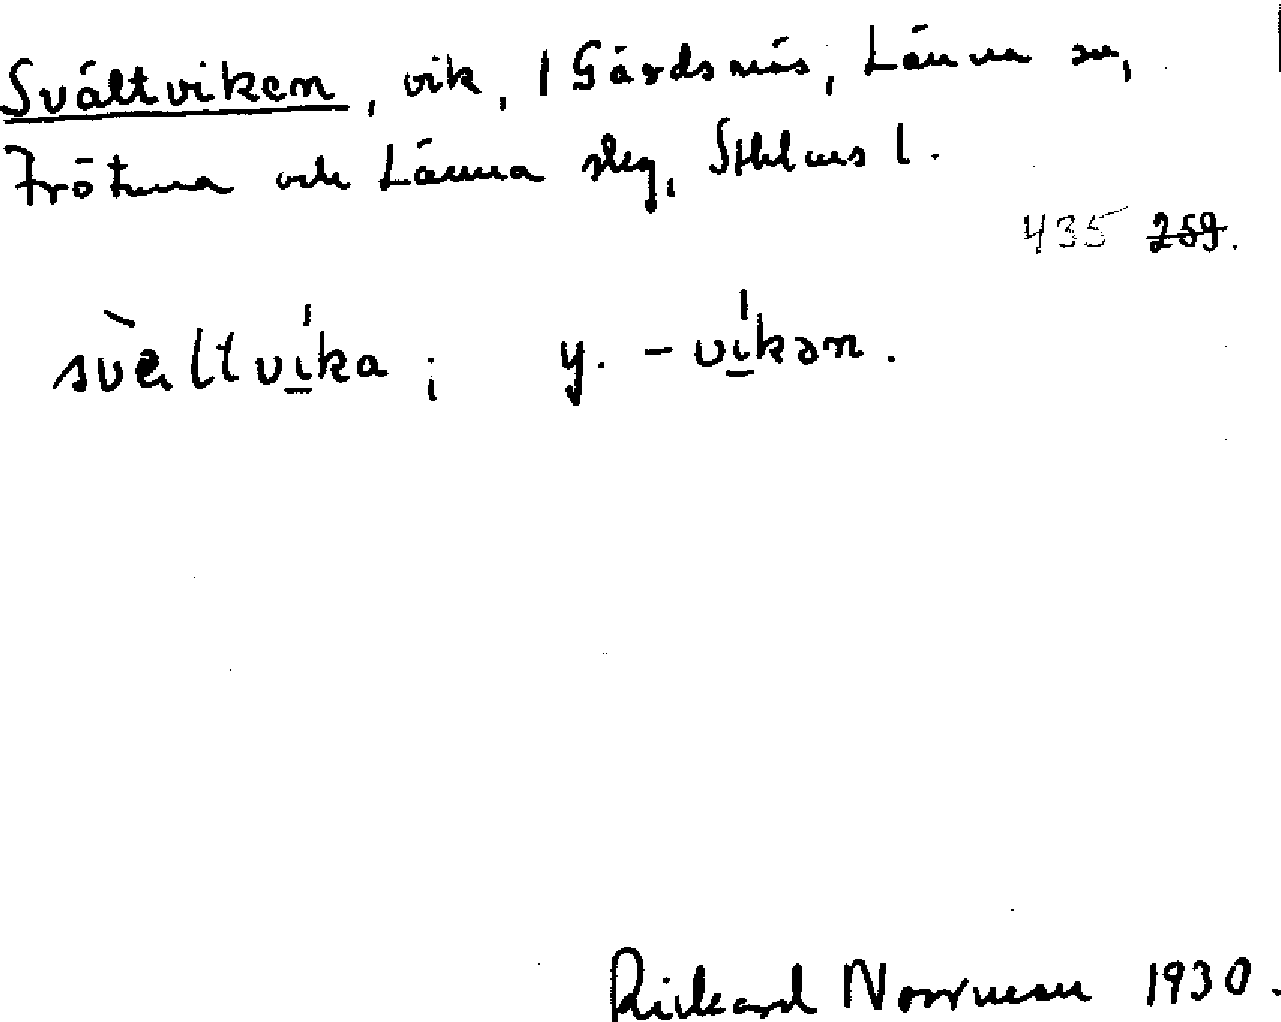 Svältviken, vik, 1 Gärdsnäs, Länna sn,
Frötuna och Länna slg, Sthlms l.
435 259.
svèltvíka; y. -víkən.
Rickard Norrman 1930.